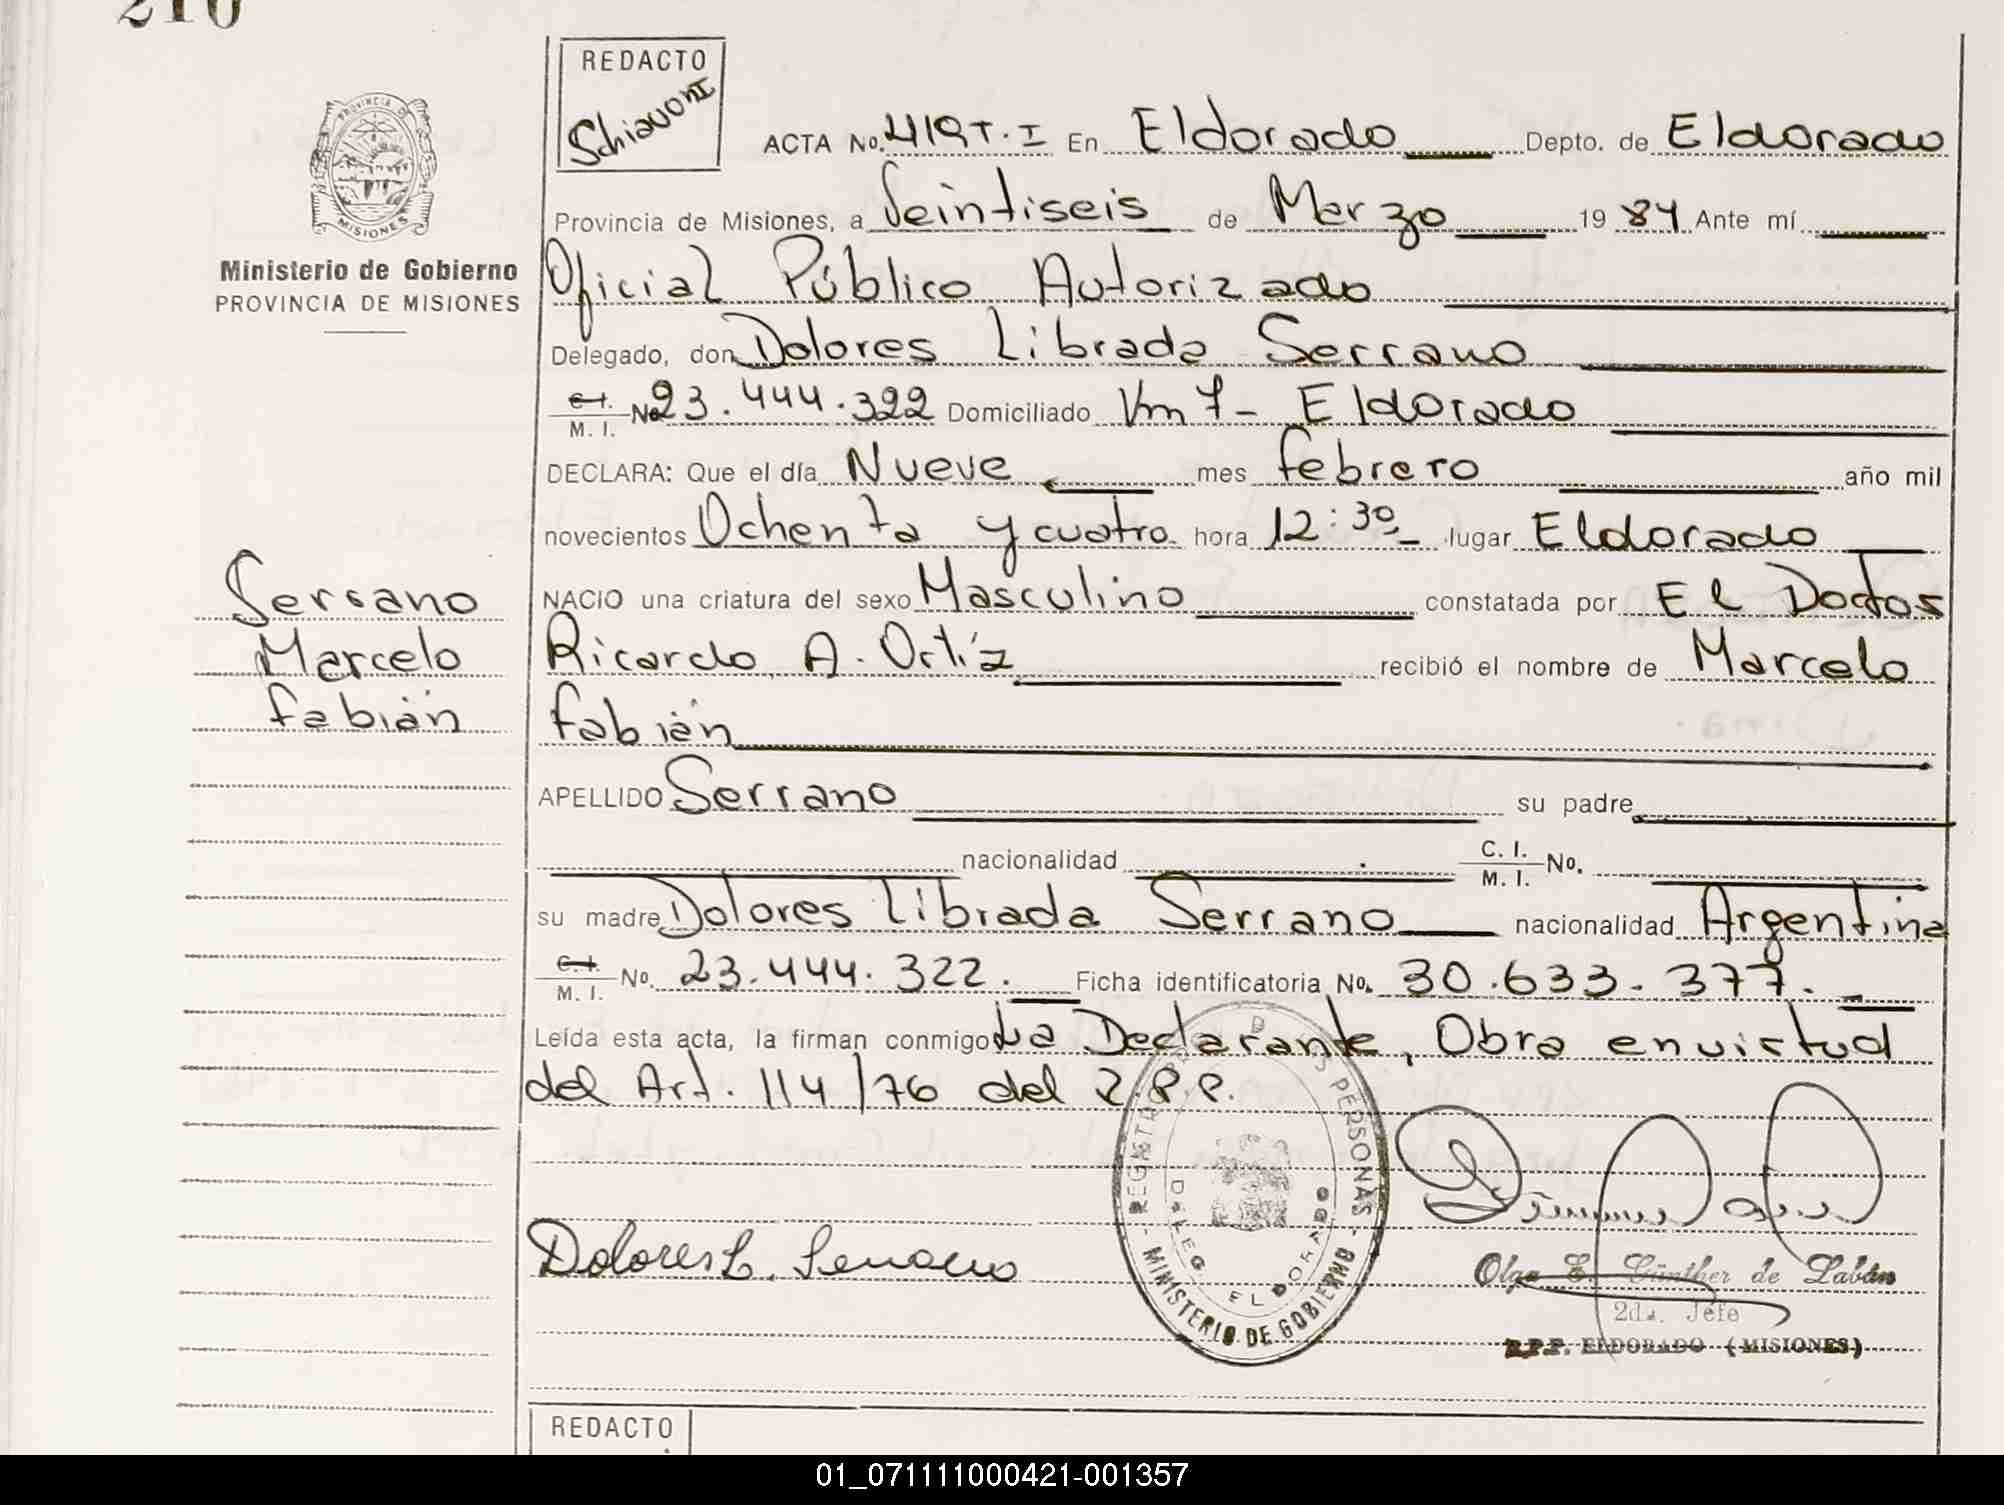 210
REDACTO
Schiavoni
PROVINCIA DE
MISIONES
Ministerio de Gobierno
PROVINCIA DE MISIONES
ACTA No. 419 T. I En Eldorado Depto. de Eldorado
Provincia de Misiones, a Veintiseis de Marzo 1984 Ante mí
Oficial Público Autorizado
Delegado, don Dolores Librada Serrano
C. I. M. I. No 23.444.322 Domiciliado Km 7- Eldorado
DECLARA: Que el día Nueve mes febrero año mil
novecientos Ochenta y cuatro hora 12:30 lugar Eldorado
NACIO una criatura del sexo Masculino constatada por El Doctor
Ricardo A. Ortíz recibió el nombre de Marcelo
Fabián
Serrano
Marcelo
Fabián
APELLIDO Serrano su padre
nacionalidad C. I. M. I. No.
su madre Dolores Librada Serrano nacionalidad Argentina
C. I. M. I. No. 23.444.322. Ficha identificatoria No. 30.633.377.
Leída esta acta, la firman conmigo La Declarante, Obra en virtud
del Art. 114/76 del R.P.P.
REGISTRO DE LAS PERSONAS - MINISTERIO DE GOBIERNO
DELEG. ELDORADO
Dolores L. Serrano
Olga E. Günther de Labán
2da. Jefe
R.P.P. ELDORADO (MISIONES)
REDACTO
01_071111000421-001357